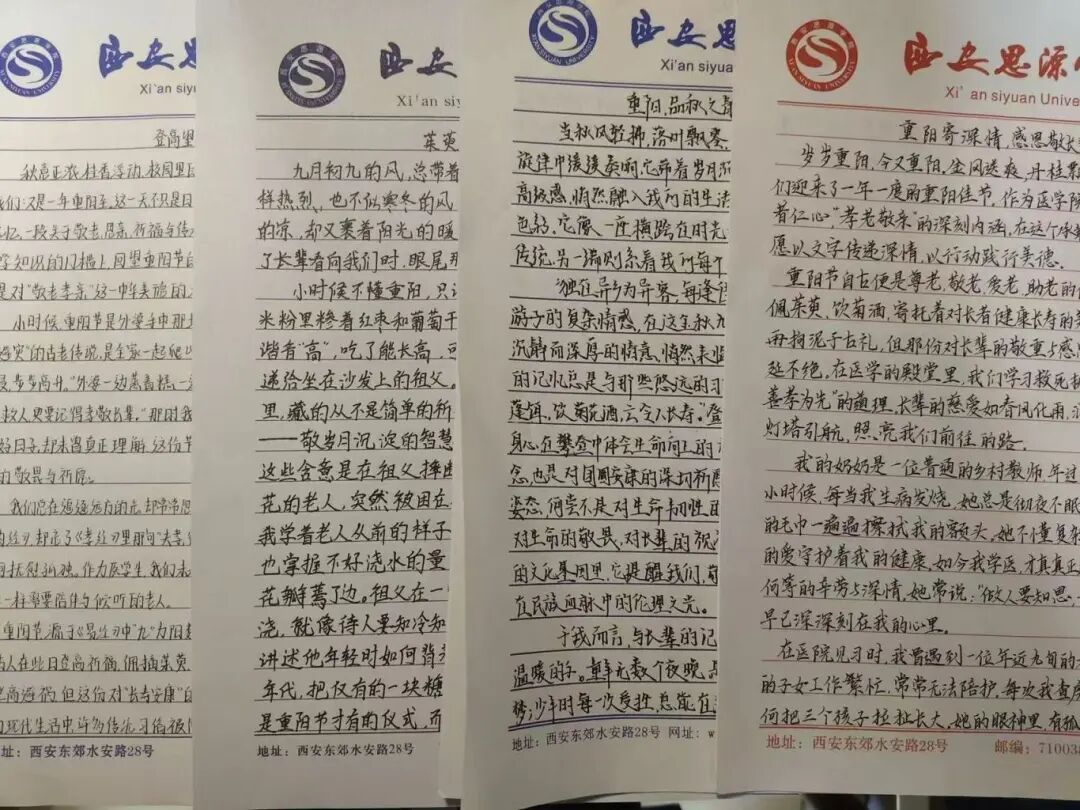 西安思
Xi'an siyua
登高望
秋意正浓,桂香浮动,校园里
我们:又是一年重阳至,这一天不只是日
忆,一段关于敬老、思亲、祈福与传
学知识的门槛上,回望重阳节的
是对“敬老孝亲”这一中华美德的
小时候,重阳节是外婆手中那
避灾”的古老传说,是全家一起爬
“步步高升。”外婆一边蒸着糕,一
救人更要记得孝敬长辈。”那时我
好日子,却未曾真正理解,这份节
的敬畏与祈愿。
我们总在追逐远方的光,却常常忽
却忘了《孝经》里那句“夫孝,
抚慰孤独。作为医学生,我们未
一样需要陪伴与倾听的老人。
重阳节,源于《易经》中“九”为阳数
古人在此日登高祈福、佩插茱萸
登高避祸,但这份对“长寿安康”的
现代生活中,许多传统习俗被
地址:西安东郊水安路28号
西安
Xi'an siy
茱萸
九月初九的风,总带着
样热烈,也不似寒冬的风
的凉,却又裹着阳光的暖
了长辈看向我们时,眼尾那
小时候不懂重阳,只
米粉里掺着红枣和葡萄干
谐音“高”,吃了能长高,
递给坐在沙发上的祖父。
里,藏的从不是简单的祈
——敬岁月沉淀的智慧
这些含意是在祖父摔
花的老人,突然被困在
我学着老人从前的样子
也掌握不好浇水的量
花瓣蔫了边。祖父在一
浇,就像待人要知冷知
讲述他年轻时如何背
年代,把仅有的一块糖
是重阳节才有的仪式,而
地址:西安东郊水安路28号
西安思
Xi'an siyua
重阳,品秋之
当秋风轻拂,落叶飘零
旋律中缓缓奏响,它带着岁月
高级感,悄然融入我们的生活
色彩,它像一座横跨在时光
传统,另一端则系着我们每个
“独在异乡为异客,每逢佳
游子的复杂情感,在这金秋九
沉静而深厚的情意,悄然表
的记忆总是与那些悠远的习
蓬饵,饮菊花酒,云令人长寿。”登
身心,在攀登中体会生命向上的
念,也是对国固安康的深切祈愿
姿态,何尝不是对生命韧性的
对生命的敬畏,对长辈的祝
的文化基因里,它提醒我们,
在民族血脉中的伦理之光。
于我而言,与长辈的记
温暖的。童年无数个夜晚,
年时每一次受挫,总能在
地址:西安东郊水安路28号 网址:w
西安思源
Xi'an siyuan Unive
重阳寄深情,感恩敬长
岁岁重阳,今又重阳,金风送爽,丹桂飘
们迎来了一年一度的重阳佳节,作为医学院
者仁心”,“孝老敬亲”的深刻内涵,在这个
愿以文字传递深情,以行动践行美德。
重阳节自古便是尊老、敬老、爱老、助老的
佩茱萸,饮菊酒,寄托着对长者健康长寿的
再拘泥于古礼,但那份对长辈的敬重与感
延不绝,在医学的殿堂里,我们学习救死
善孝为先”的道理,长辈的慈爱如春风化雨,
灯塔引航,照亮我们前往的路。
我的奶奶是一位普通的乡村教师,年过
小时候,每当我生病发烧,她总是彻夜不眠
的毛巾一遍遍擦拭我的额头,她不懂复杂
的爱守护着我的健康,如今我学医,才真真正
何等的辛劳与深情,她常说:“做人要知恩,
早已深深刻在我的心里。
在医院见习时,我曾遇到一位年近九旬的
的子女工作繁忙,常常无法陪护,每次我查房
何把三个孩子拉扯长大,她的眼神里,有孤
地址:西安东郊水安路28号 邮编:71003